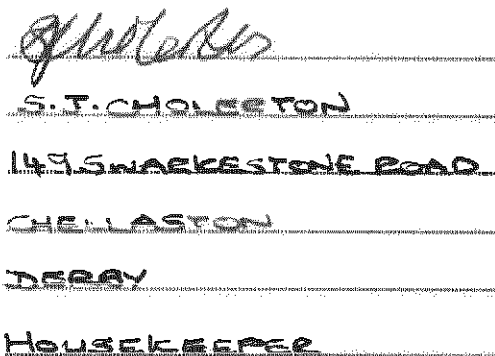 S.T. CHOLERTON
149 SWARKESTONE ROAD
CHELLASTON
DERBY
HOUSEKEEPER